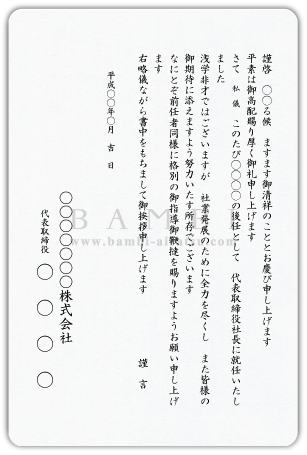 謹啓　〇〇る候　ますます御清祥のこととお慶び申し上げます
平素は御高配賜り厚く御礼申し上げます
さて　私儀　このたび〇〇〇〇の後任として　代表取締役社長に就任いたし
ました
浅学非才ではございますが　社業発展のために全力を尽くし　また皆様の
御期待に添えますよう努力いたす所存でございます
なにとぞ前任者同様に格別の御指導御鞭撻を賜りますようお願い申し上げ
ます
右略儀ながら書中をもちまして御挨拶申し上げます
謹　言
平成〇〇年〇月　吉　日
〇〇〇〇〇〇〇株式会社
代表取締役　〇　〇　〇　〇